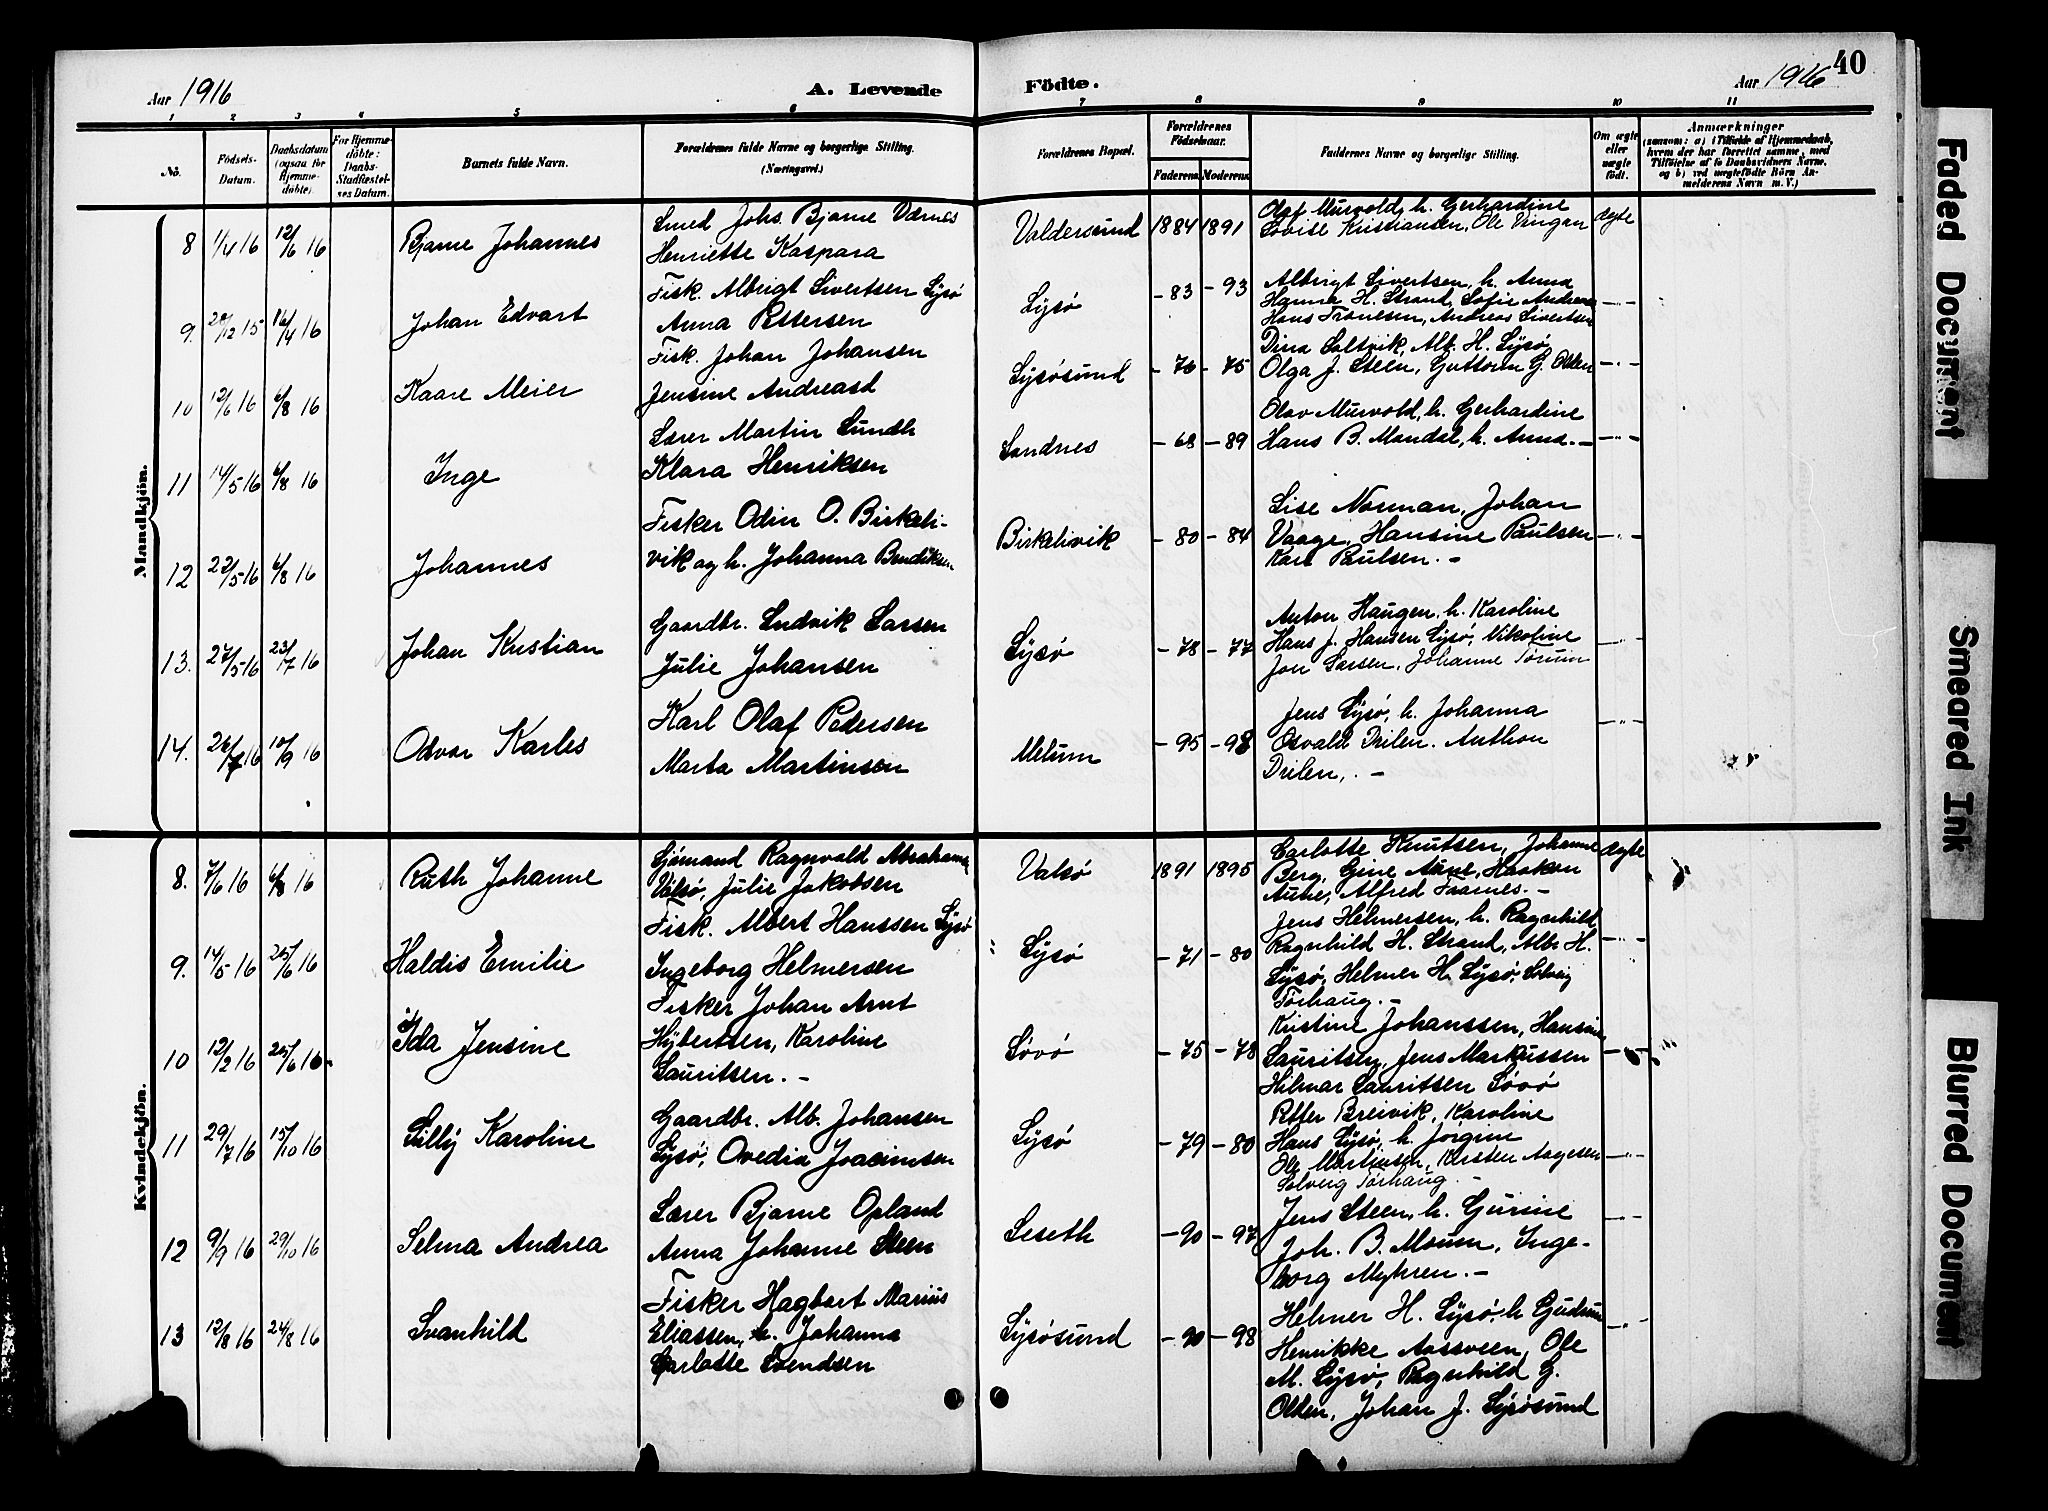 Aar 1916
A. Levende
Födte.
Aar 1916
40
1 2 3 4 5 6 7 8 9 10 11
No.
Födsels-
Datum.
Daabsdatum
(ogsaa för
Hjemme-
döbte).
For Hjemme-
döbte:
Daabs-
Stadfæstel-
ses Datum.
Barnets fulde Navn.
Forældrenes fulde Navne og borgerlige Stilling.
(Næringsvei.)
Forældrenes Bopæl.
Forældrenes
Födselsaar.
Faderens. Moderens.
Faddernes Navne og borgerlige Stilling.
Om ægte
eller
uægte
födt.
Anmærkninger
(saasom: a) i Tilfælde af Hjemmedaab,
hvem der har forrettet samme, med
Tilföielse af to Daabsvidners Navne,
og b) ved uægtefödte Börn An-
melderens Navn m. V.)
Mandkjön.
8 1/4 16 12/6 16 Bjarne Johannes
Smed Johs. Bjarne Værnes
Henriette Kaspara
Valdersund 1884 1891
Olaf Murvold, h. Gerhardine
Lovise Kristiansen, Ole Vingan
ægte
9. 29/12 15 16/4 16 Johan Edvart
Fisk. Albrigt Sivertsen Lysø
Anna Pettersen
Lysø -83 -93
Albrigt Sivertsen, h. Anna
Hanna H. Strand, Sofie Andrea
Hans Tranesen, Andreas Sivertsen
-"-
10 12/6 16 6/8 16 Kaare Meier
Fisk. Johan Johansen
Jensine Andreasd
Lysøsund -76 -75
Dina Saltvik, Alb. H. Lysø,
Olga J. Steen, Guttorm G. Olden
-"-
11 14/5 16 6/8 16 Inge
Lærer Martin Sundh
Klara Henriksen
Sandnes -68 -89
Olav Murvold, h. Gerhardine
Hans B. Mandal, h. Anna. -
-"-
12 22/5 16 6/8 16 Johannes
Fisker Odin O. Birkeli-
vik og h. Johanna Bendiksen
Birkelivik -80 -84
Lise Norman, Johan
Vaage, Hansine Paulsen
Karl Paulsen. -
-"-
13. 27/5 16 23/7 16 Johan Kristian
Gaardbr. Ludvik Larsen
Julie Johansen
Lysø -78 -77
Anton Haugen, h. Karoline
Hans J. Hansen Lysø, Nikoline
Jon Larsen, Johanne Tørum
-"-
14. 26/7 16 10/9 16 Odvar Karles
Karl Olaf Pedersen
Marta Martinsen
Melum -95 -98
Jens Lysø, h. Johanna
Osvald Drilen. Anthon
Drilen, . -
-"-
Kvindekjön.
8. 7/6 16 6/8 16 Ruth Johanne
Sjømand Ragnvald Abrahams
Valsø, Julie Jakobsen
Valsø 1891 1895
Carlotte Knutsen, Johanne
Berg, Gine Aune, Haakon
Aune, Alfred Framnes. -
ægte
9. 14/5 16 25/6 16 Haldis Emilie
Fisk. Albert Hanssen Lysø
Ingeborg Helmersen
Lysø -71 -80
Jens Helmersen, h. Ragnhild
Ragnhild H. Strand, Alb. H.
Lysø, Helmer H. Lysø, Solveig
Tørhaug. -
-"-
10 12/2 16 25/6 16 Ida Jensine
Fisker Johan Arnt
Hybertsen, Karoline
Lauritsen. -
Søvø -75 -78
Kristine Johanssen, Hansine
Lauritsen, Jens Markussen
Hilmar Lauritsen Søvø
11 29/7 16 15/10 16 Lilly Karoline
Gaardbr. Alb. Johansen
Lysø, Ovedia Joacimsen
Lysø -79 -80
Petter Breivik, Karoline
Hans Lysø, h. Jørgine
Ole Martinsen, Kirsten Aagesen
Solveig Tørhaug. -
-"-
12 9/9 16 29/10 16 Selma Andrea
Lærer Bjarne Opland
Anna Johanne Steen
Leseth -90 -97
Jens Steen, h. Gurine
Joh. B. Moum, Inge-
borg Myhren. -
-"-
13 12/8 16 24/8 16 Svanhild
Fisker Hagbart Marius
Eliassen, h. Johanna
Carlotte Svendsen
Lysøsund -90 -98
Helmer H. Lysø, h Gudrun
Henrikke Aassveen, Ole
M. Lysø, Ragnhild G.
Olden, Johan J. Lysøsund
-"-
Faded Document
Smeared Ink
Blurred Document